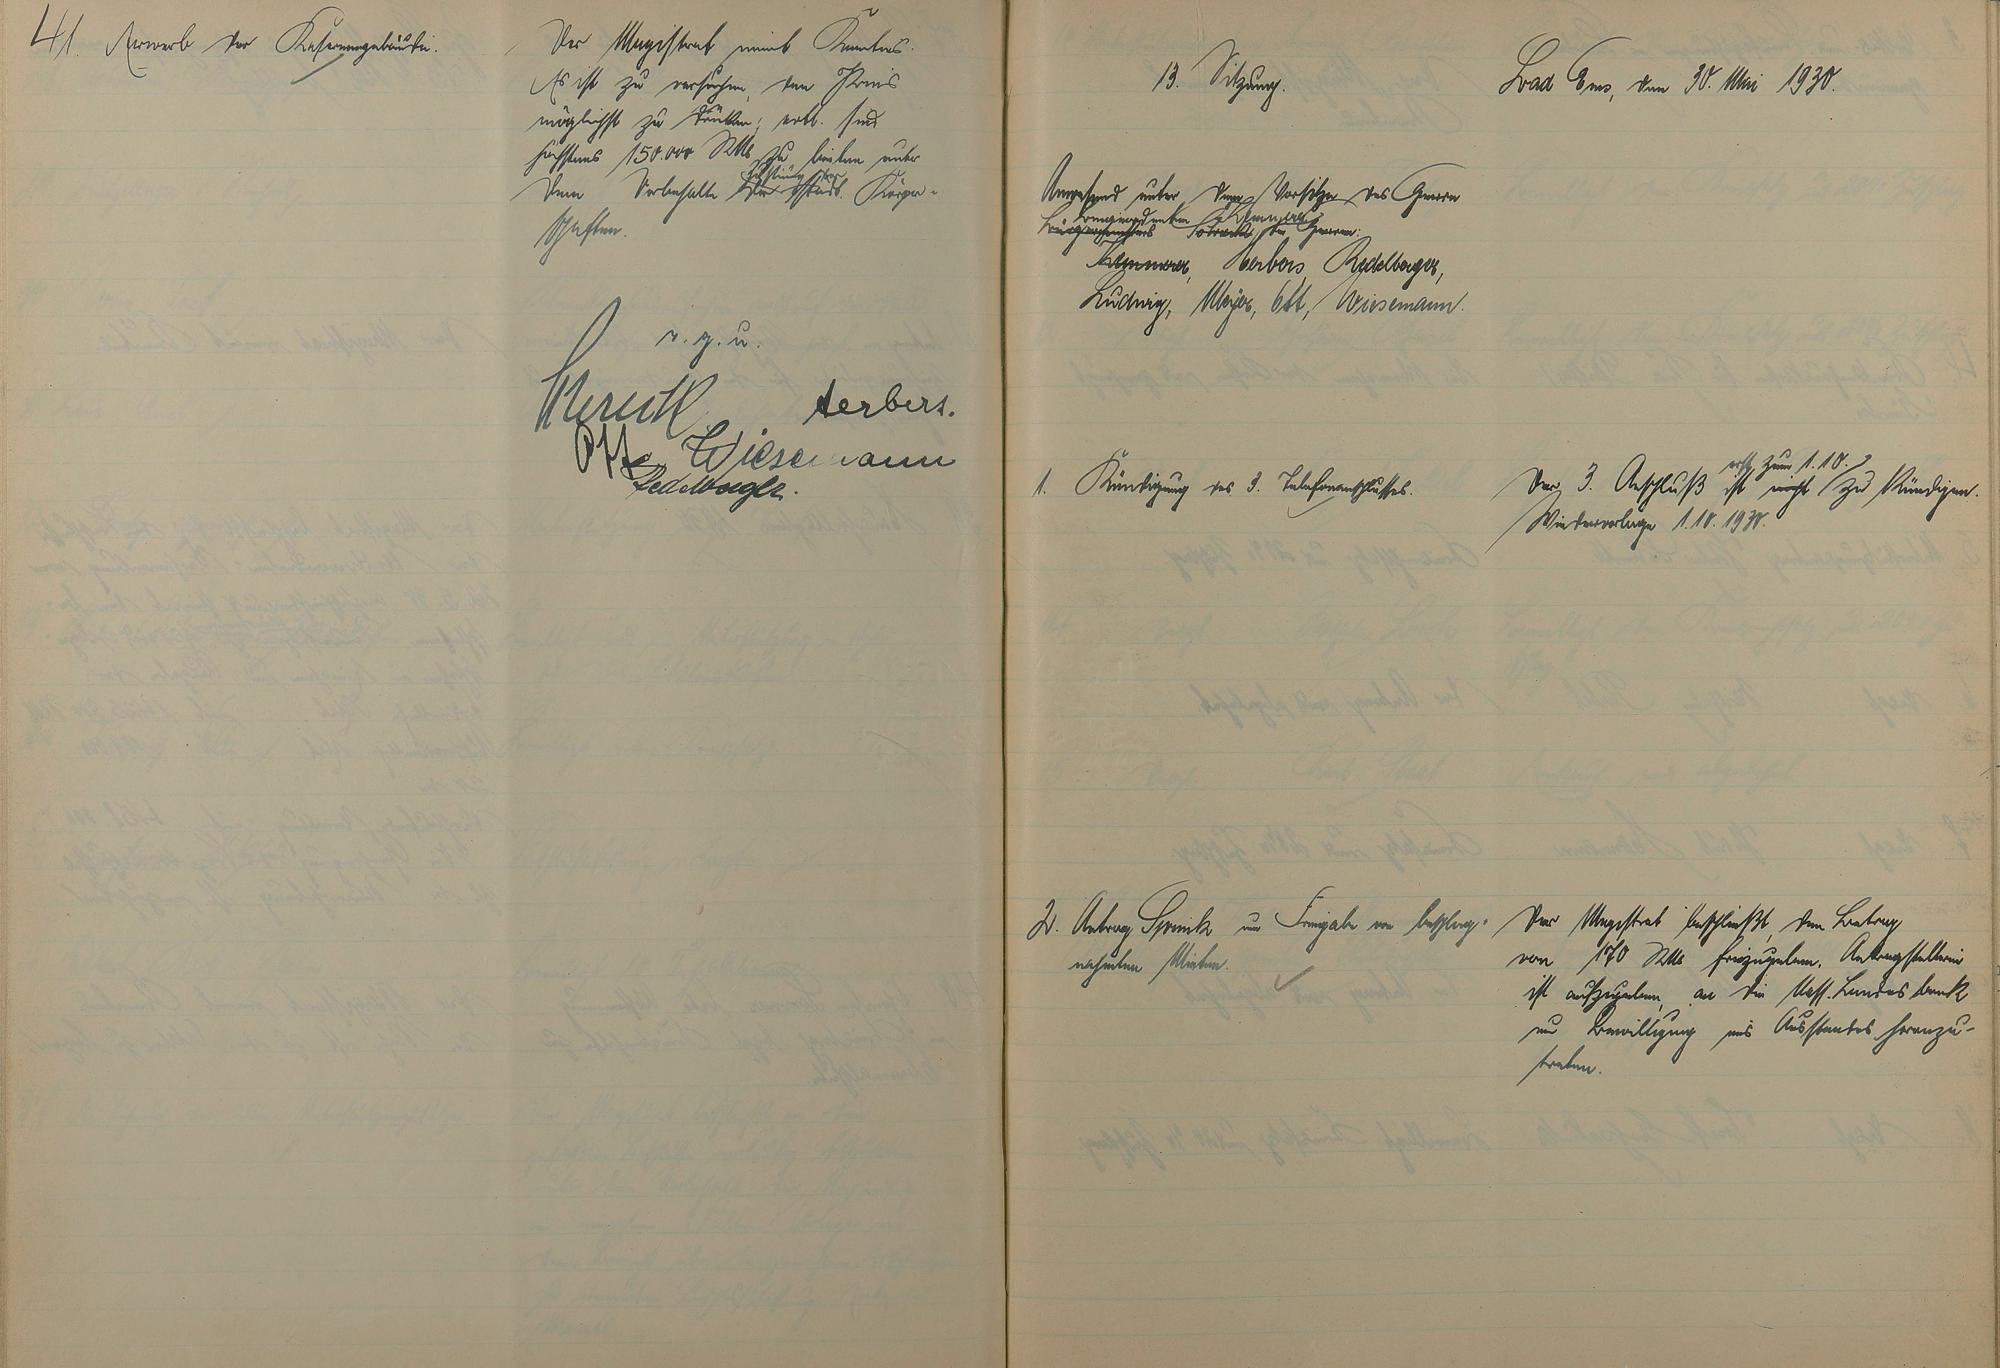 41. Erwerb der Kasernengebäude.
Der Magistrat nimmt Kenntnis.
Es ist zu versuchen, den Preis
möglichst zu drücken; evtl. sind
höchstens 150.000 RMk zu bieten unter
dem Vorbehalte der Zustimmung der städt. Körper-
schaften.
v. g. u.
Herbers.
Ott Wiesemann
Redelberger.
13. Sitzung.
Bad Ems, den 30. Mai 1930.
Anwesend unter dem Vorsitze des Herrn
Beigeordneten Schemmer
Bürgermeisters die Herren:
Schemmer, Herbers, Redelberger,
Ludwig, Meyer, Ott, Wiesemann.
1. Kündigung des 3. Telefonanschlusses.
erst zum 1.10.
Der 3. Anschluß ist nicht zu kündigen.
Wiedervorlage 1.10.1930.
2. Antrag um Freigabe von beschlag-
nahmten Mieten.
Der Magistrat beschließt, den Betrag
von 170 RMk freizugeben. Antragstellerin
ist aufzugeben, an die Nass. Landesbank
um Bewilligung eines Ausstandes heranzu-
treten.